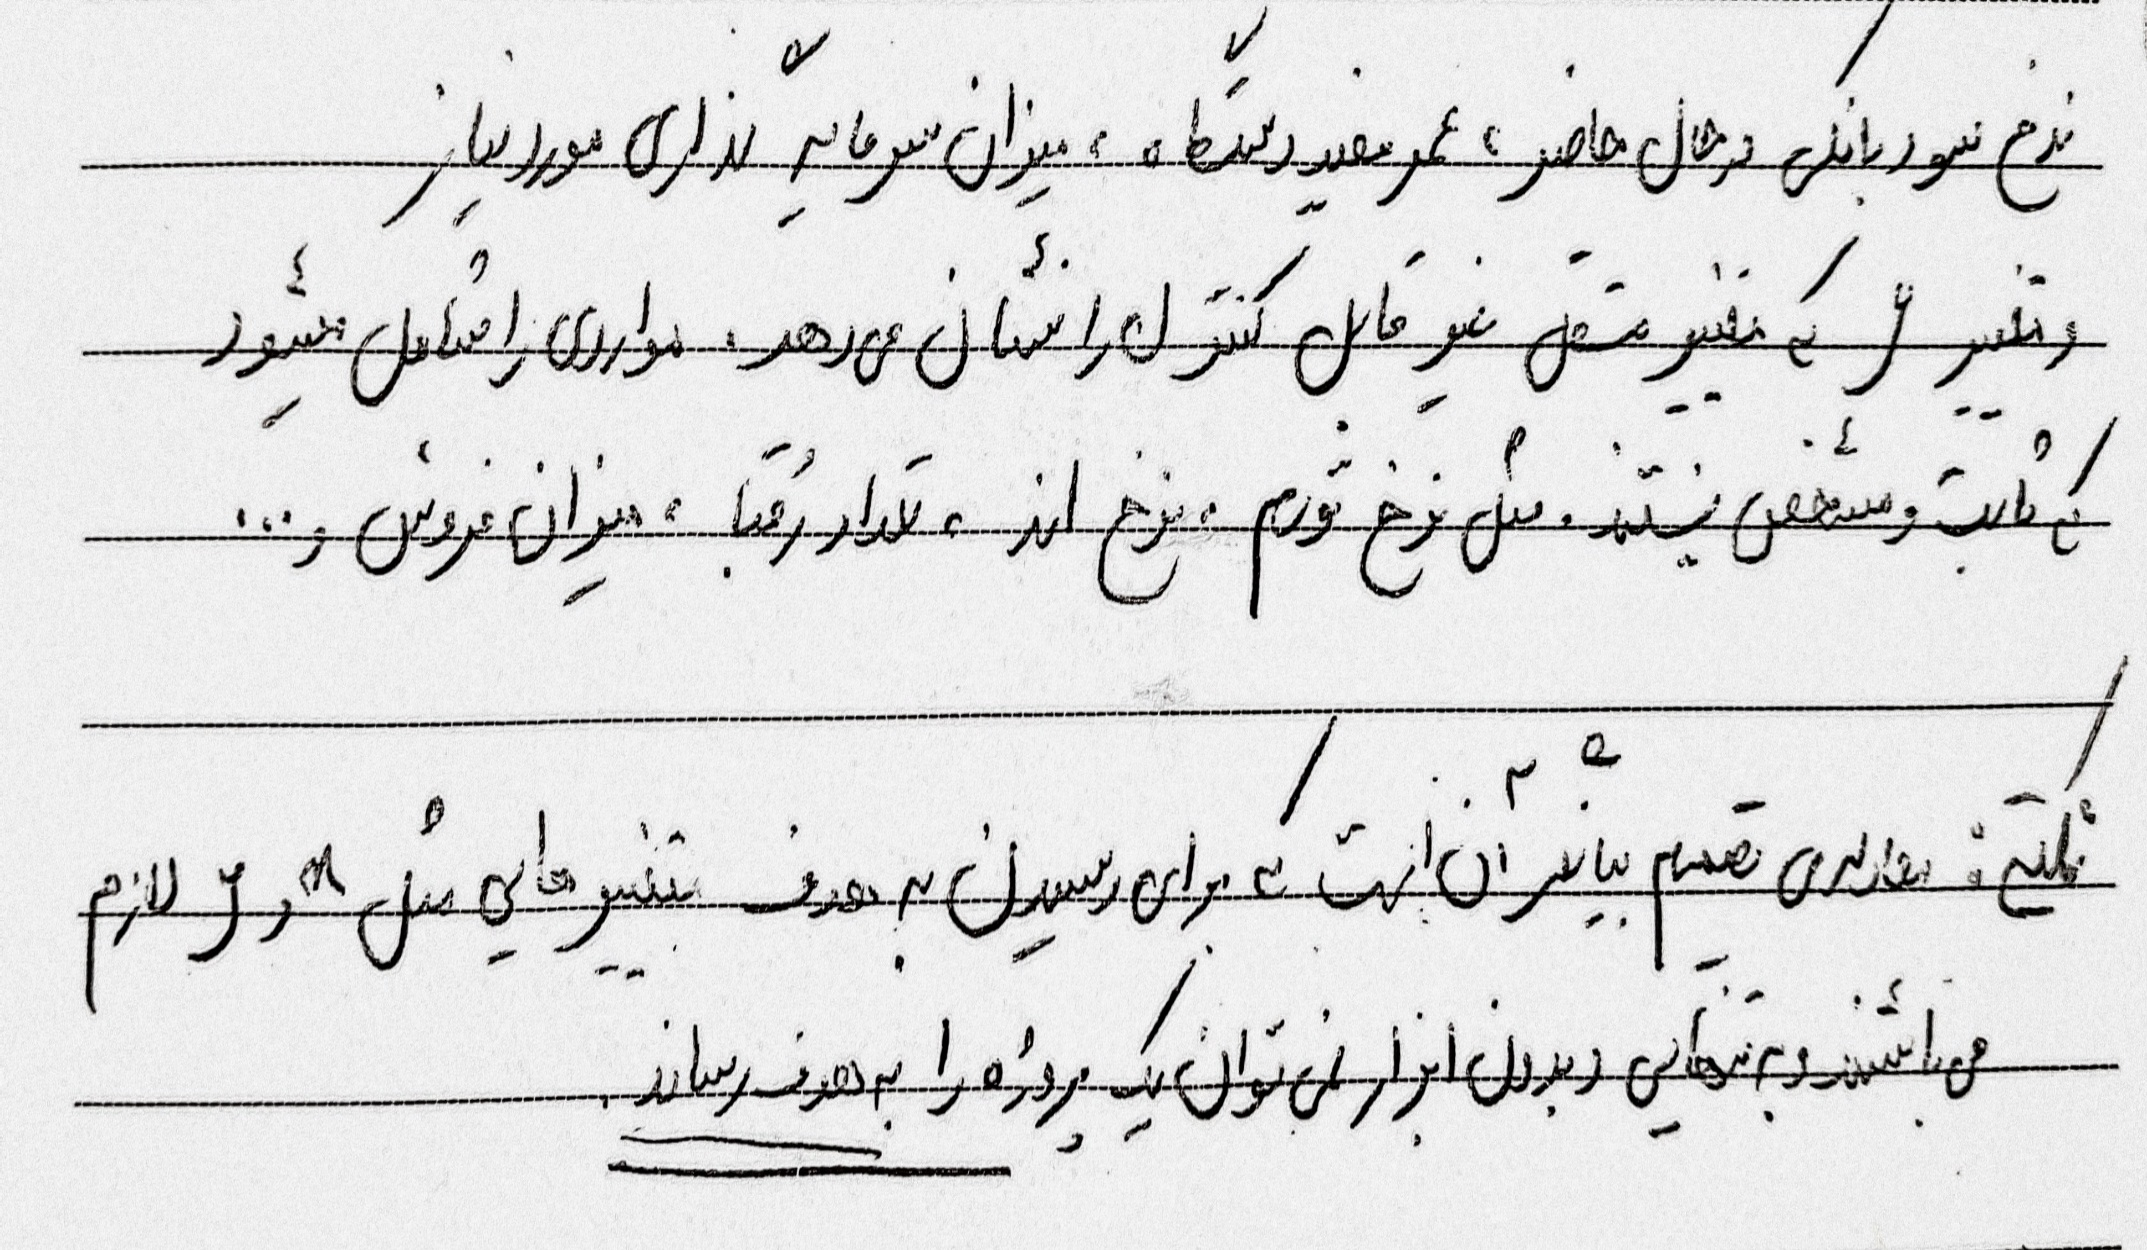 نرخ سود بانکی در حال حاضر، عمر مفید دستگاه، میزان سرمایه گذاری مورد نیاز
و متغیر y که متغیر مستقل غیر قابل کنترل را نشان می دهد. مواردی را شامل میشود
که ثابت و مشخص نیستند. مثل نرخ تورم، نرخ ارز، تعداد رقبا، میزان فروش و...
نکته: تصمیم بیانگر آن است که برای رسیدن به هدف متغیر هایی مثل x و y لازم
می باشند و به تنهایی و بدون ابزار نمی توان یک پروژه را به هدف رساند.